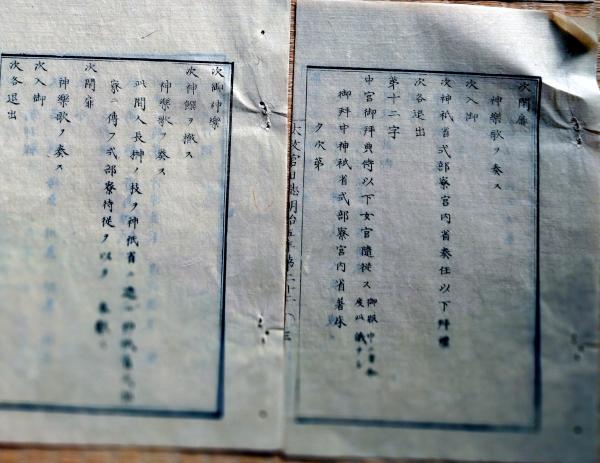 次閉扉
神樂歌ヲ奏ス
次入御
次神祇省式部寮宮内省奏任以下拜禮
次各退出
第十二字
中宮御拜典侍以下女官隨從ス
御拜中神祇省式部寮宮内省著床
夕次第
次御神樂
次神饌ヲ撤ス
神樂歌ヲ奏ス
此間人長榊ノ枝ヲ神祇省ニ
寮ニ傳フ式部寮侍從
次閉扉
神樂歌ヲ奏ス
次入御
次各退出